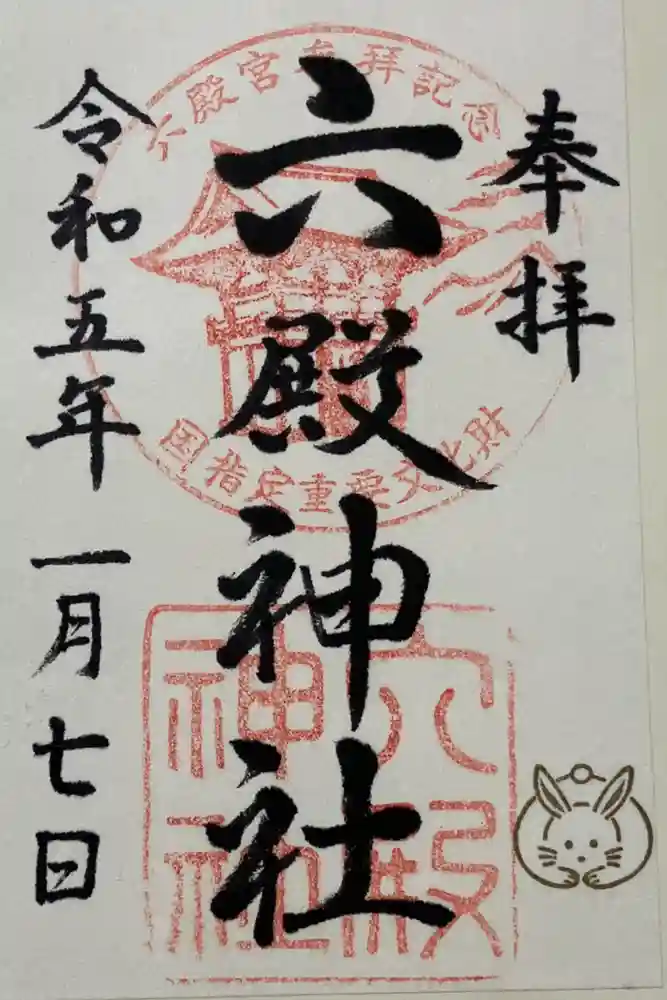 奉拝
六殿神社
令和五年一月七日
六殿宮参拝記念
国指定重要文化財
六殿
神社